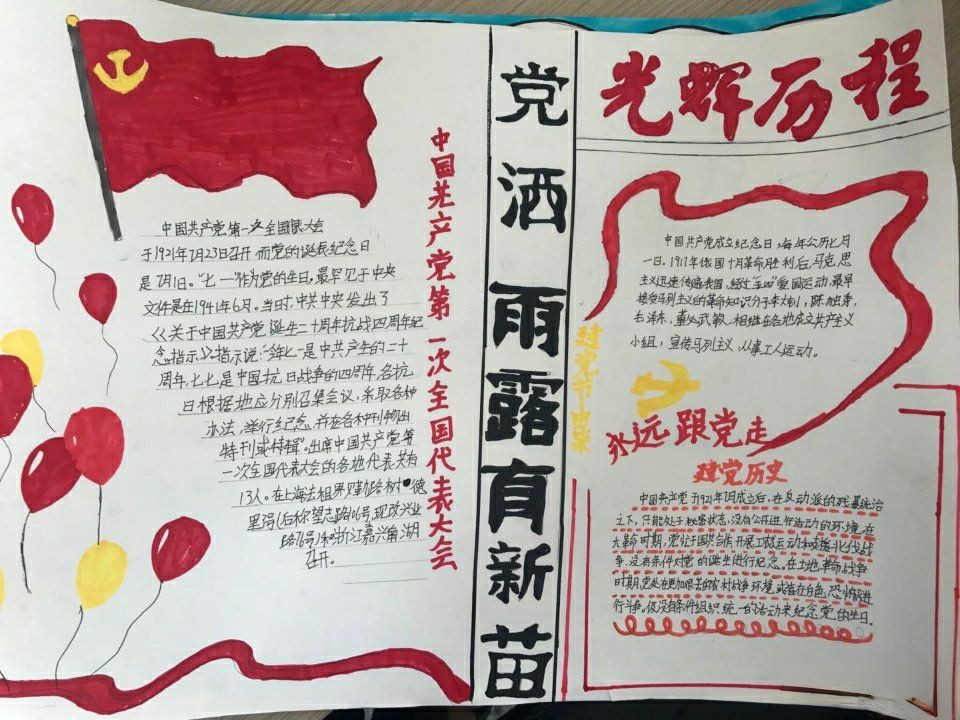 中国共产党第一次全国代表大会
于1921年7月23日召开而党的诞辰纪念日
是7月1日。“七一”作为党的生日,最早见于中央
文件是在1941年6月。当时中共中央发出了
《关于中国共产党诞生二十周年抗战四周年纪
念指示》指示说:“今年七一是中共产生的二十
周年,七七是中国抗日战争的四周年,各抗
日根据地应分别召集会议,采取各种
办法,举行纪念,并在各种刊物出
特刊或特辑”。出席中国共产党第
一次全国代表大会的各地代表共有
13人。在上海法租界贝勒路树德
里3号(后称望志路106号,现改兴业
路76号)和浙江嘉兴南湖
召开。
中国共产党第一次全国代表大会
党洒雨露育新苗
光辉历程
中国共产党成立纪念日,每年公历七月
一日。1917年俄国十月革命胜利后,马克思
主义迅速传遍我国,经过“五四”爱国运动,最早
接受马列主义的革命知识分子李大钊,陈独秀,
毛泽东,董必武等,相继在各地成立共产主义
小组,宣传马列主义,从事工人运动。
建党节由来
永远跟党走
建党历史
中国共产党于1921年7月成立后,在反动派的残暴统治
之下,只能处于秘密状态,没有公开进行活动的环境,在
大革命时期,党忙于国共合作,开展工农运动和支援北伐战
争,没有条件对党的诞生进行纪念。在土地革命战争
时期,党处在更加艰苦的农村战争环境,或者在白色恐怖
进行斗争。仅没有条件组织统一的活动来纪念党的生日。